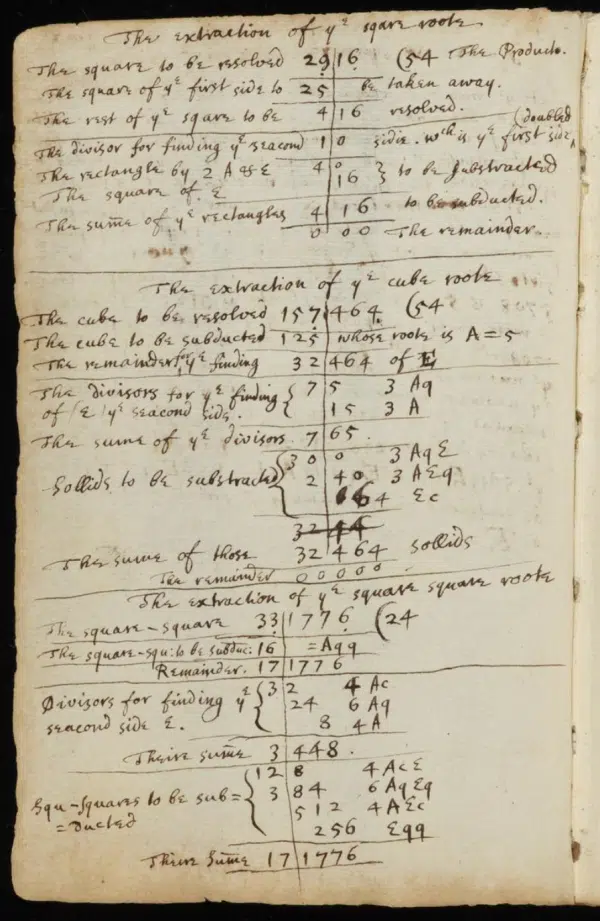 The extraction of yᵉ sqare roote
The square to be resolved 29|16 (54 The Product.
The square of yᵉ first side to 25 be taken away.
The rest of yᵉ sqare to be 4|16 resolved.
The divisor for finding yᵉ seacond 1|0 side. wᶜʰ is yᵉ first side (doubled
The rectangle by 2 A & E 4|0
The square of E 16 } to be substracted
The sum̄e of yᵉ rectangles 4|16 to be subducted.
0 00 The remainder.
The extraction of yᵉ cube roote
The cube to be resolved 157|464 (54
The cube to be subducted 125 whose roote is A=5
The remainder for yᵉ finding 32|464 of E
The divisors for yᵉ finding { 7|5 3 Aq
of (E) yᵉ seacond side. { 15 3 A
The sume of yᵉ divisors 7|65.
Sollids to be substracted { 30|0 3 AqE
2|40 3 AEq
64 Ec
32|44
The sume of those 32|464 sollids
The remainder 00000
The extraction of yᵉ square square roote
The square-square 33|1776 (24
The square-squ: to be subduc: 16 =Aqq
Remainder. 17|1776
Divisors for finding yᵉ { 3|2 4 Ac
seacond side E. { 24 6 Aq
8 4A
Theire sum̄e 3|448.
12|8 4AcE
Squ-squares to be sub= { 3|84 6AqEq
=ducted 512 4AEc
256 Eqq
Theire sum̄e 17|1776